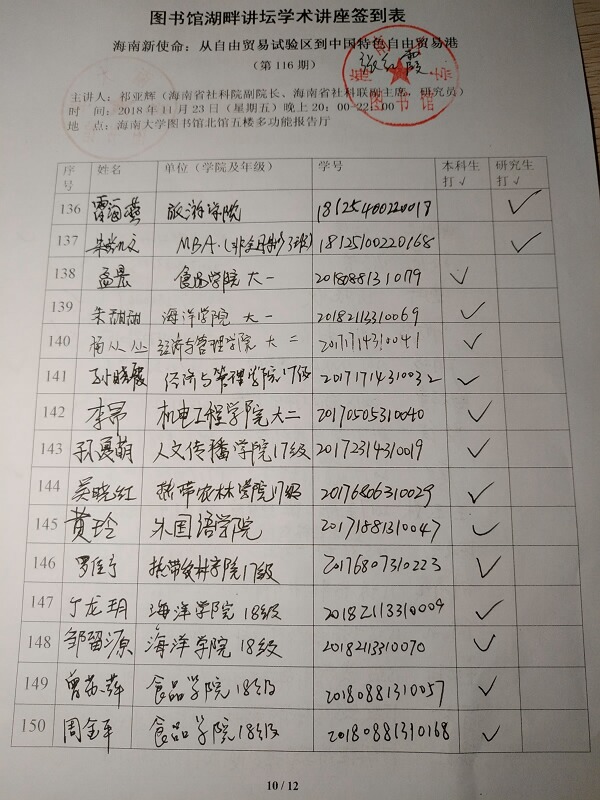 图书馆湖畔讲坛学术讲座签到表
海南新使命：从自由贸易试验区到中国特色自由贸易港
（第 116 期）
主讲人：祁亚辉（海南省社科院副院长、海南省社科联副主席，研究员）
时 间：2018 年 11 月 23 日（星期五）晚上 20：00-22：00
地 点：海南大学图书馆北馆五楼多功能报告厅
序号 姓名 单位（学院及年级） 学号 本科生打√ 研究生打√
136 雷海燕 旅游学院 18125400220017 √
137 MBA.(非全日制3班) 18125100220168 √
138 孟景 食品学院 大一 2018088131079 √
139 朱甜甜 海洋学院 大一 20182113310069 √
140 杨丛丛 经济与管理学院 大二 20171714310041 √
141 孙晓霞 经济与管理学院17级 20171714310032 √
142 李昂 机电工程学院大二 20170505310040 √
143 孙夏萌 人文传播学院17级 20172314310019 √
144 吴晓红 热带农林学院17级 20176806310029 √
145 黄玲 外国语学院 20171881310047 √
146 罗佳宁 热带农林学院17级 20176807310223 √
147 丁龙玥 海洋学院 18级 20182113310009 √
148 邹留源 海洋学院 18级 20182113310070 √
149 曾苏萍 食品学院 18级 20180881310057 √
150 周金军 食品学院 18级 20180881310168 √
10 / 12